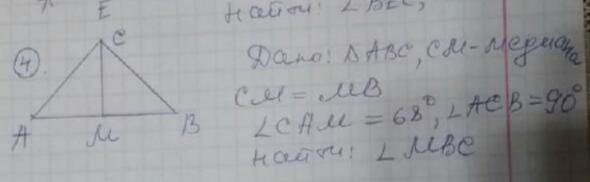 Найти: ∠BEC,
E
C
④
A
M
B
Дано: ΔABC, CM-медиана
CM = MB
∠CAM = 68°, ∠ACB = 90°
Найти: ∠MBC